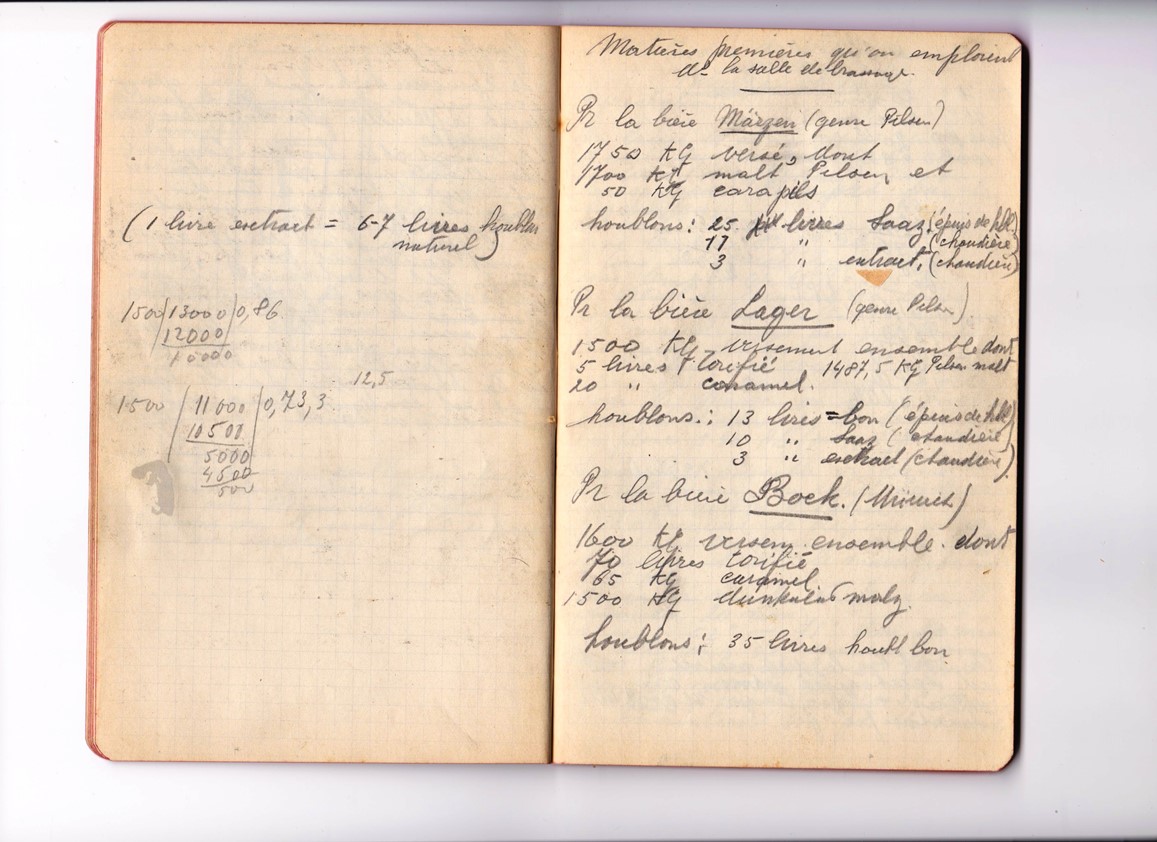 (1 livre extract = 6-7 livres houblon
naturel)
1500/13000/0,86
12000
10000
12,5
1500/11000/0,73,3
10500
5000
4500
500
Matières premières qu'on emploient
ds la salle de brassage.
Pr la bière Märzen (genre Pilsen)
1750 KG versé, dont
1700 KG malt Pilsen et
50 KG carapils
houblons: 25 livres Saaz (épuis de hbl.)
17 " (chaudière)
3 " extract, (chaudière)
Pr la bière Lager (genre Pilsn)
1500 KG versement ensemble dont
5 livres torifié 1487,5 KG Pilsen malt
20 " caramel.
houblons: 13 livres bon (épuis de hbl)
10 " Saaz (chaudière)
3 " extract (chaudière)
Pr la bière Bock. (Münich)
1600 KG versem. ensemble. dont
70 livres torifié
65 KG caramel
1500 KG dunkeles malz.
houblons: 35 livres houbl bon